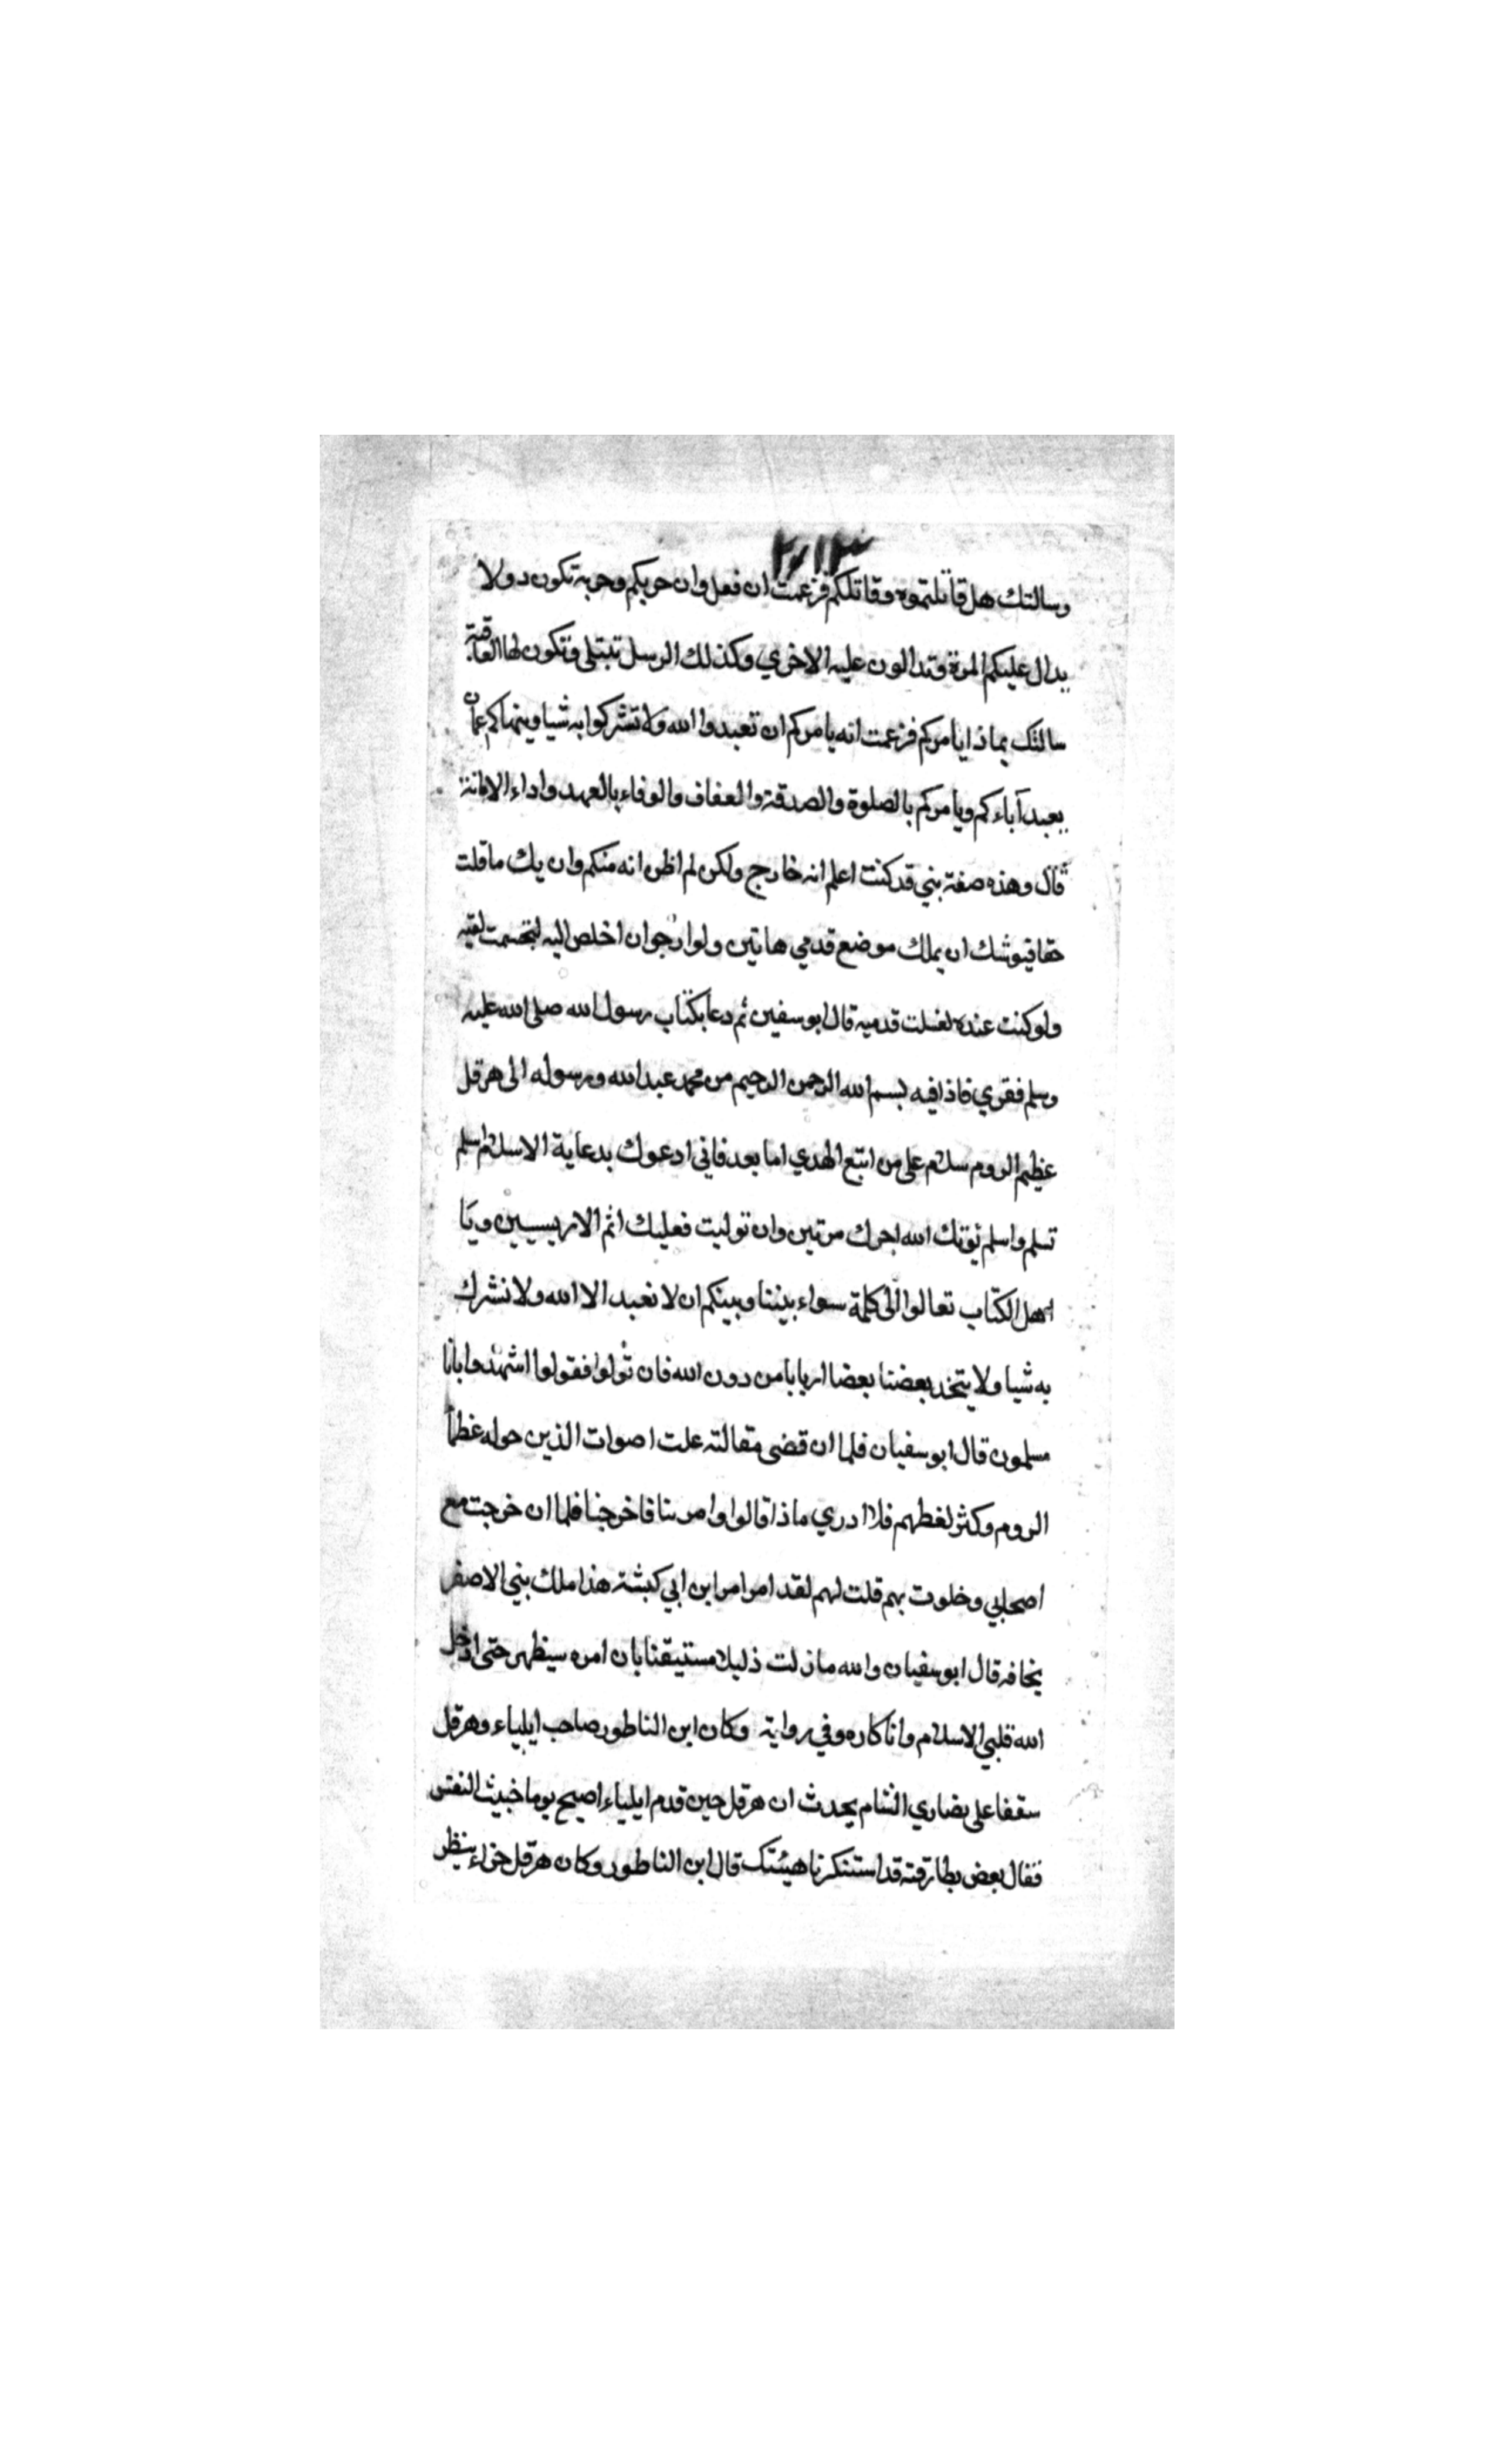 وسالتك هل قاتلتموه وقاتلكم فزعمت ان فعل وان حربكم وحربه تكون دولا
يدال عليكم المرة وتدالون عليه الاخري وكذلك الرسل تبتلى وتكون لها العاقبة
سالتك بماذا يامركم فزعمت انه يامركم ان تعبدوا الله ولا تشركوا به شيا وينهاكم عما كان
يعبد آباءكم ويامركم بالصلوة والصدقة والعفاف والوفاء بالعهد واداء الامانة
قال وهذه صفة نبي قد كنت اعلم انه خارج ولكن لم اظن انه منكم وان يك ما قلت
حقا فيوشك ان يملك موضع قدمي هاتين ولو ارجو ان اخلص اليه لتجسمت لقيه
ولو كنت عنده لغسلت قدميه قال ابو سفين ثم دعا بكتاب رسول الله صلى الله عليه
وسلم فقري فاذا فيه بسم الله الرحمن الرحيم من محمد عبد الله ورسوله الى هرقل
عظيم الروم سلام على من اتبع الهدي اما بعد فاني ادعوك بدعاية الاسلام اسلم
تسلم واسلم يؤتك الله اجرك مرتين وان توليت فعليك اثم الاريسيين ويا
اهل الكتاب تعالوا الى كلمة سواء بيننا وبينكم ان لا نعبد الا الله ولا نشرك
به شيا ولا يتخذ بعضنا بعضا اربابا من دون الله فان تولوا فقولوا اشهدوا بانا
مسلمون قال ابو سفيان فلما ان قضى مقالته علت اصوات الذين حوله عظما
الروم وكثر لغطهم فلا ادري ماذا قالوا وامر بنا فاخرجنا فلما ان خرجت مع
اصحابي وخلوت بهم قلت لهم لقد امر امر ابن ابي كبشة هذا ملك بني الاصفر
يخافه قال ابو سفيان والله ما زلت ذليلا مستيقنا بان امره سيظهر حتى ادخل
الله قلبي الاسلام وانا كاره وفي رواية وكان ابن الناطور صاحب ايلياء وهرقل
سقفا على نصاري الشام يحدث ان هرقل حين قدم ايلياء اصبح يوما خبيث النفس
فقال بعض بطارقته قد استنكرنا هيئتك قال ابن الناطور وكان هرقل حزاء ينظر